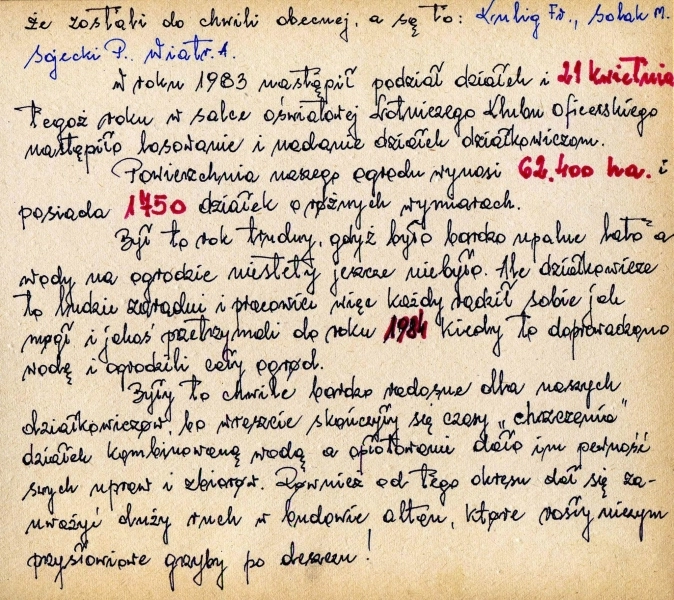 że zostali do chwili obecnej, a są to: Kulig Fr., Solak M.
Sojecki P. Wiatr. A.
W roku 1983 nastąpił podział działek i 21 kwietnia
tegoż roku w salce oświatowej Lotniczego Klubu Oficerskiego
nastąpiło losowanie i nadanie działek działkowiczom.
Powierzchnia naszego ogrodu wynosi 62.400 ha. i
posiada 1450 działek o różnych wymiarach.
Był to rok trudny, gdyż było bardzo upalne lato a
wody na ogrodzie niestety jeszcze niebyło. Ale działkowicze
to ludzie zaradni i pracowici więc każdy radził sobie jak
mógł i jakoś przetrzymali do roku 1984 kiedy to doprowadzono
wodę i ogrodzili cały ogród.
Były to chwile bardzo radosne dla naszych
działkowiczów, bo wreszcie skończyły się czasy „chrzczenia"
działek kombinowaną wodą a opłotowanie dało im pewność
swych upraw i zbiorów. Również od tego okresu dał się za-
uważyć duży ruch w budowie altan, które rosły niczym
przysłowiowe grzyby po deszczu!